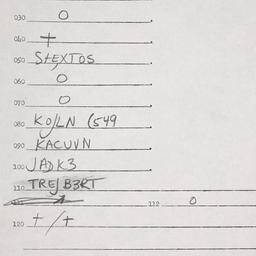 030 O
040 +
050 S+EXTOS
060 O
070 O
080 KO/LN (549
090 KACUVN
100 JADK3
110 TREJB3RT
112 O
120 + / +